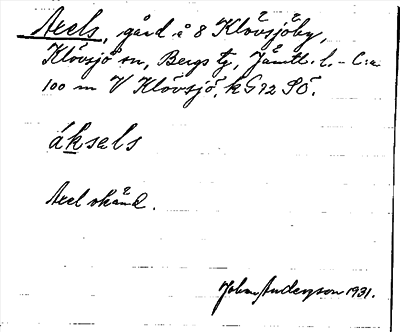 Axels, gård å 8 Klövsjöby,
Klövsjö sn, Bergs tg, Jämtl. l. - C:a
100 m V Klövsjö, k G72 SÖ.
áksels
Axel okänd.
Johan Anderson 1931.